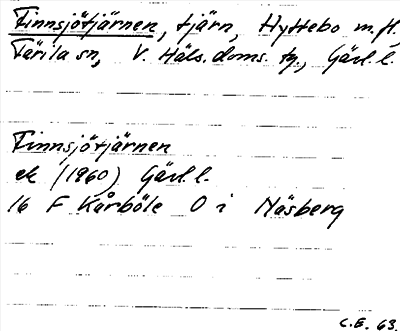 Finnsjötjärnen, tjärn, Hyttebo m.fl.
Färila sn, V. Häls. doms. tg., Gävl. l.
Finnsjötjärnen
ek (1960) Gävl. l.
16 F Kårböle O i Näsberg
C.E. 63.